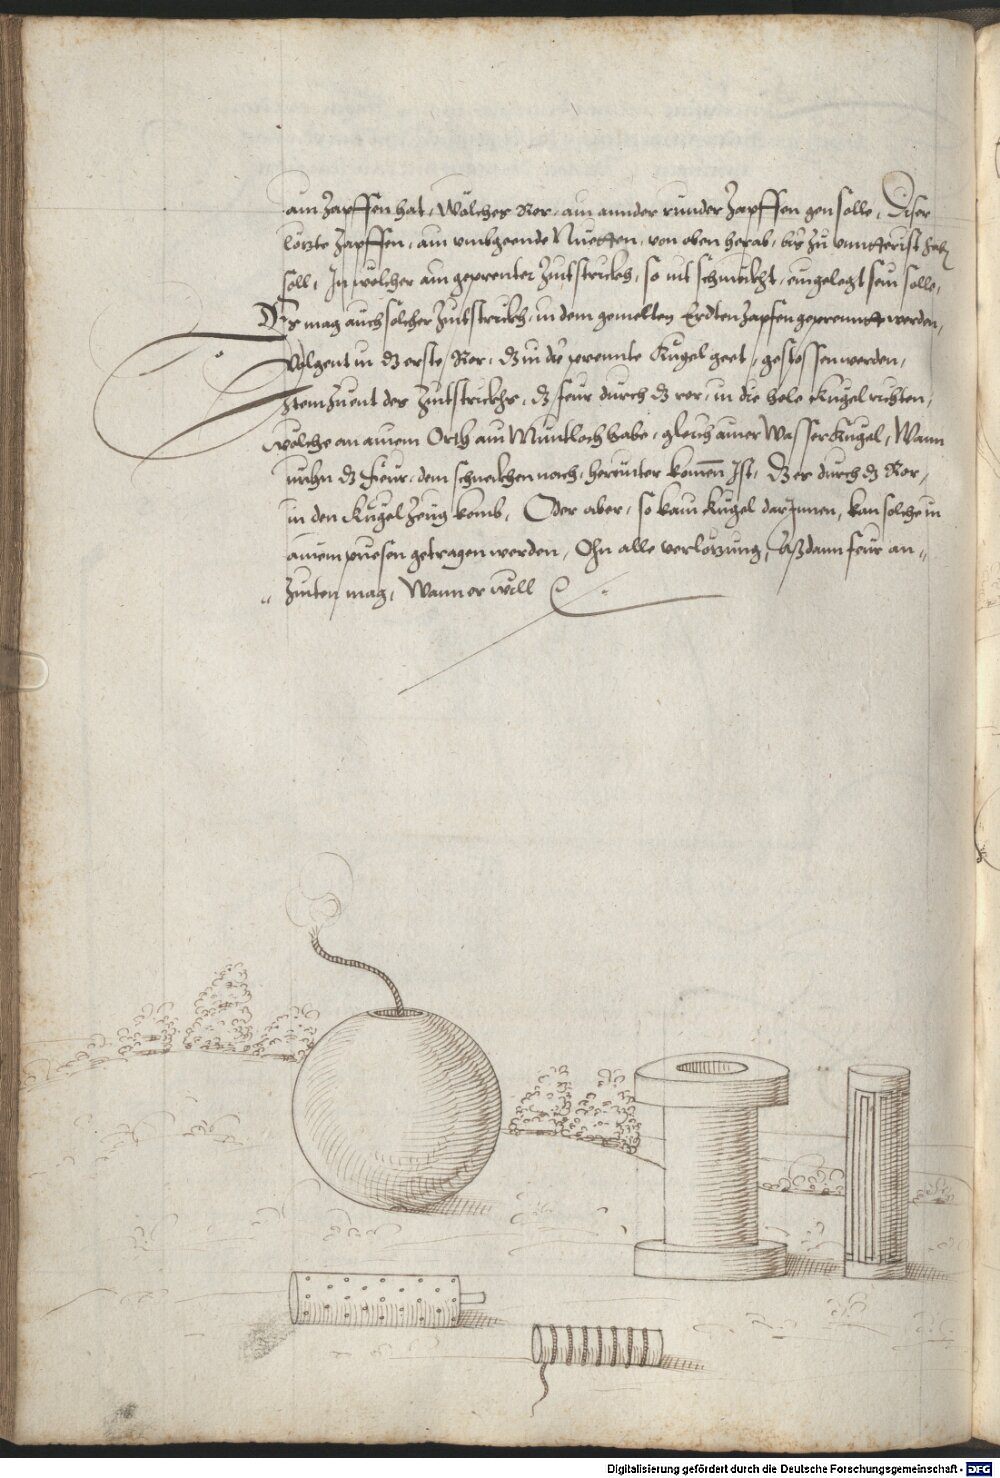 ain Zapffen hat, Wölcher Ror, ain annder runder Zapffen gen solle, Diser
letzte Zapffen, ain umbgeende Nuetten, von oben herab, bis zu unnterist hab
soll, In wölcher ain geprenter Zintstrickh, so nit schmeckht, eingelegt sein solle,
Es mag auch solcher Zintstrickh, in dem gemelten Erdten Zapfen geprennt werden,
Volgent in dz erste Ror, dz in die prennte Kugel geet, gestossen werden,
Item Zuent des Zintstrickhs, dz feur durch dz ror, in die hole Kugel richten,
wölche an ainem Orth ain Muntloch habe, gleich ainer Wasser Kugel, Wann
nuhn dz Feur, dem schneckhen nach, herunter komen Ist, Dz er durch dz Ror,
in den Kugel Zeug komb, Oder aber, so kain Kugel darInnen, kan solche in
ainem puesen getragen werden, Ohn alle verletzung, Alßdann feur an„
„ Zinten mag, Wann er will
Digitalisierung gefördert durch die Deutsche Forschungsgemeinschaft - DFG